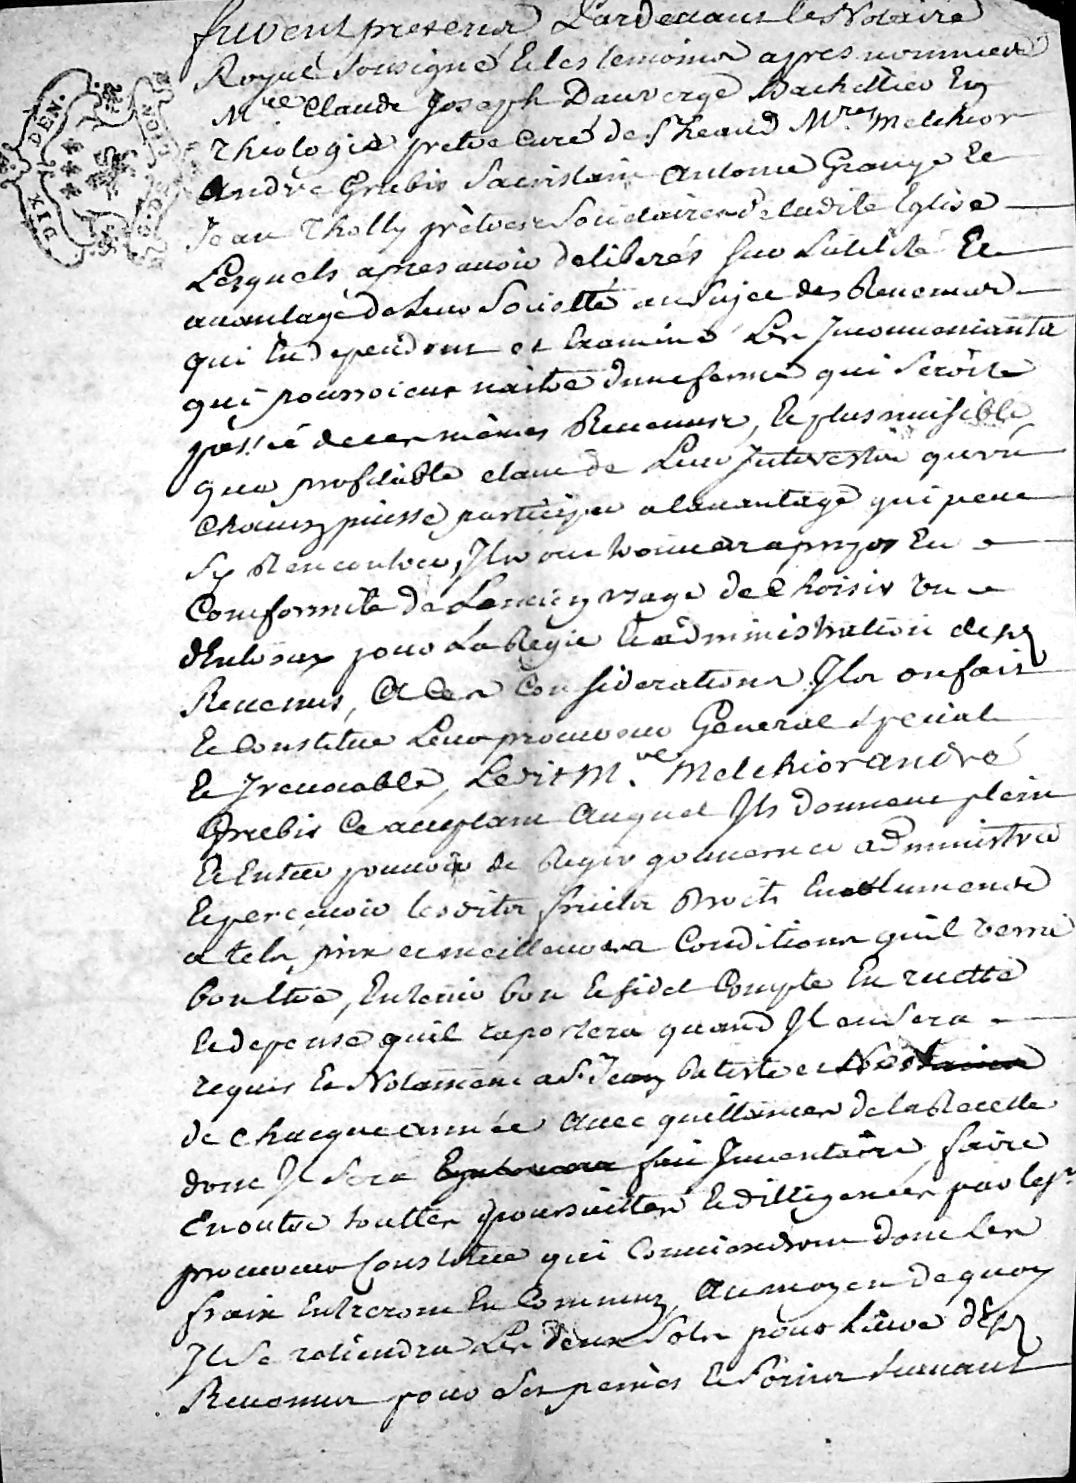 furent presens Pardevant le Notaire
Royal Sousigné Et les temoins apres nommes
Mre Claude Joseph Dauverge Bachellier En
Theologie pretre curé de St heand Mres Melchior
André Grubis Sacristain Antoine Grange Et
Jean Tholly prètres Societaires de ladite Eglise
Lesquels apres avoir deliberés sur Lutilité Et
avantage de Leur Societté au Sujet des Revenus
qui En dependent et Examiné Les Inconvenients
qui pourroient naitre dune ferme qui Seroit
passée de ces mèmes Revenus, Et plus nuisible
que profitable etant de Leur Interest quun
chacun puisse participer alavantage qui peut
Sy Rencontrer, Ils ont trouvés apropos En
Conformité de Lancien usage de Choisir un
dEntreux pour La Regie Et administration desd
Revenus, A Ces Considerations Ils onfait
Et Constitué Leur procureur General special
Et Irrevocable, Ledit Mre Melchior andré
Grubis Ce acceptant Auquel Ils donnent plein
Et Entier pouvoir de Regir gouverner administrer
Et percevoir lesdits fruits droits Emolumens
a tels prix et meilleures Conditions quil verra
bon Etre, En tenir bon Et fidel Compte En recette
Et depense quil raportera quand Il en Sera
requis Et Notament a St Jean batiste et
de chacque année avec quittances de la Recette
dont Il Sera fait Inventaire, faire
En outre toutes poursuittes Et dilligences par lesr
procureur Constitué qui Conviendront dont Les
fraix Entreront En Commun, Au moyen de quoy
Il Se retiendra Les deux Sols pour Livre desd
Revenus pour Ses peines Et Soins Suivant
DIX DEN.